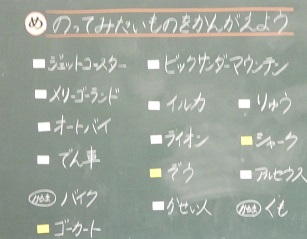 め のってみたいものをかんがえよう
ジェットコースター
メリーゴーランド
オートバイ
でん車
バイク
ゴーカート
ビックサンダーマウンテン
イルカ
ライオン
ぞう
かせい人
りゅう
シャーク
アルセウス
くも